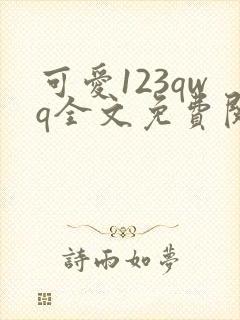 可愛123qw
q全文免費閱
詩雨如夢